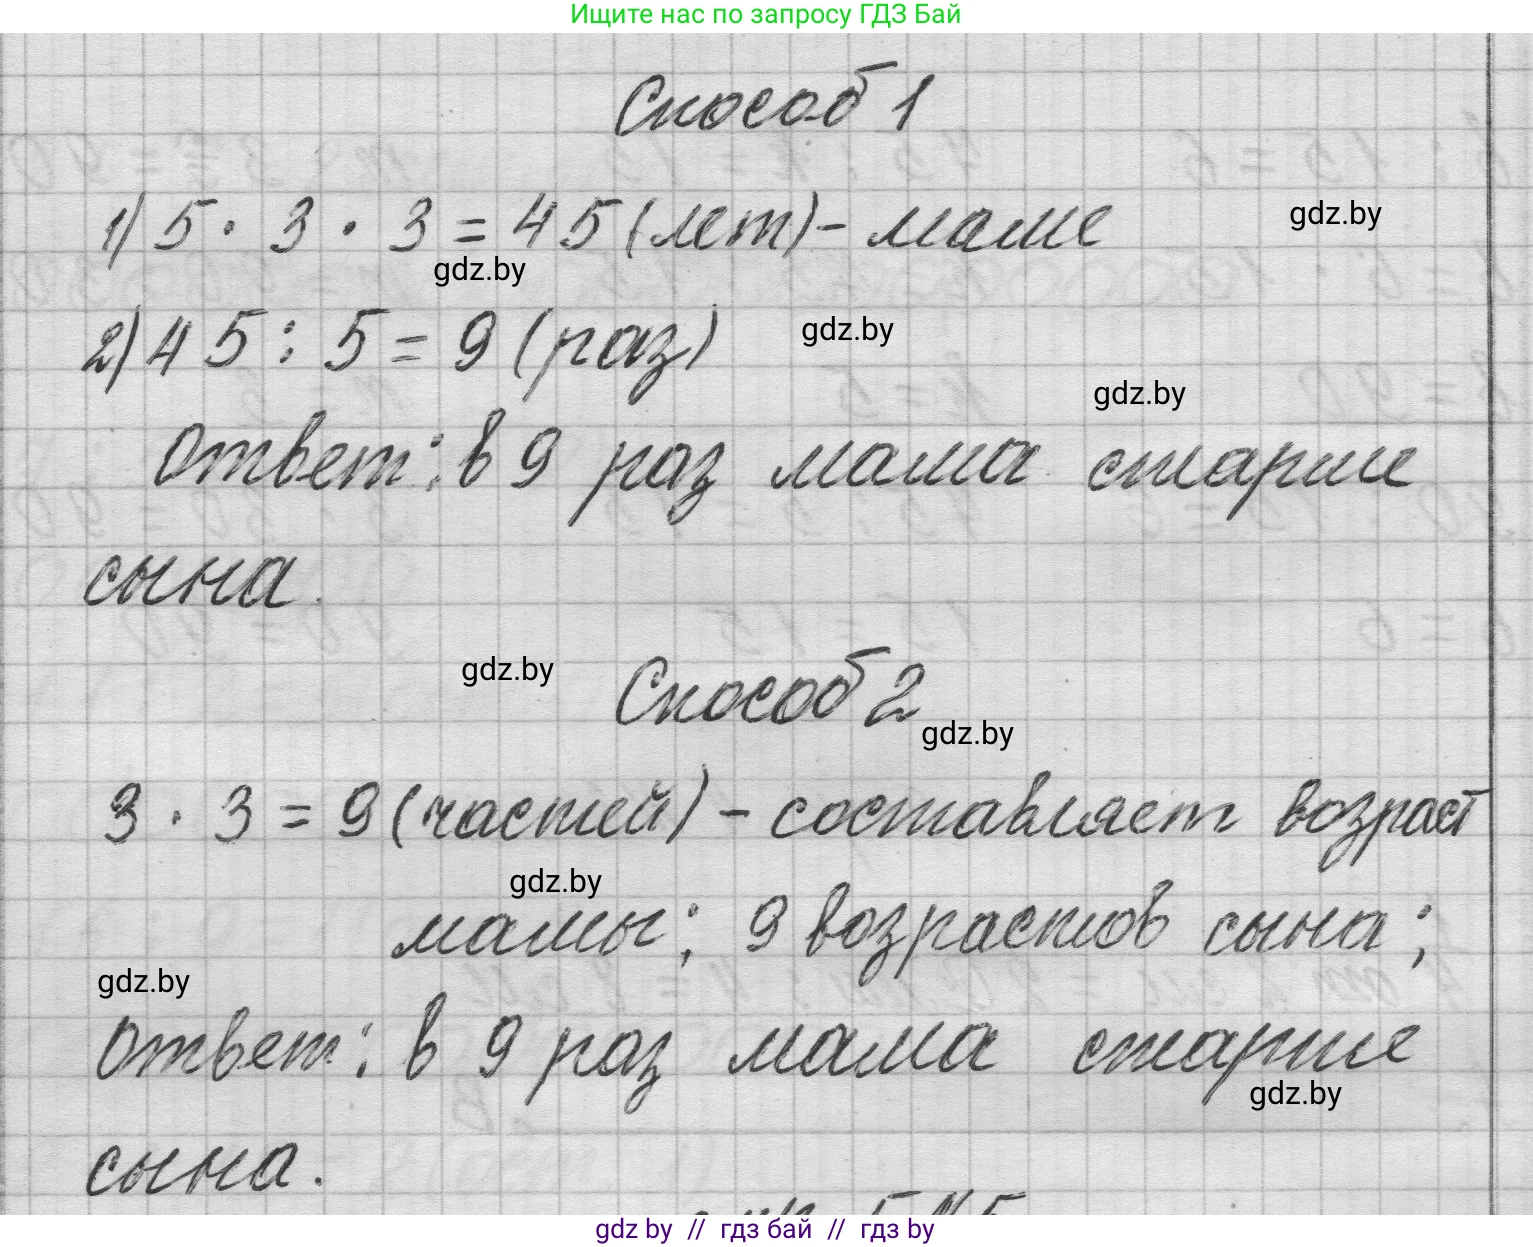 Ищите нас по запросу ГДЗ Бай
Способ 1
1) 5 · 3 · 3 = 45 (лет) - маме
gdz.by
gdz.by
2) 45 : 5 = 9 (раз)
gdz.by
gdz.by
Ответ: в 9 раз мама старше
сына.
gdz.by
Способ 2
gdz.by
3 · 3 = 9 (частей) - составляет возраст
gdz.by
мамы; 9 возрастов сына;
gdz.by
Ответ: в 9 раз мама старше
gdz.by
сына.
gdz by // гдз бай // гдз by